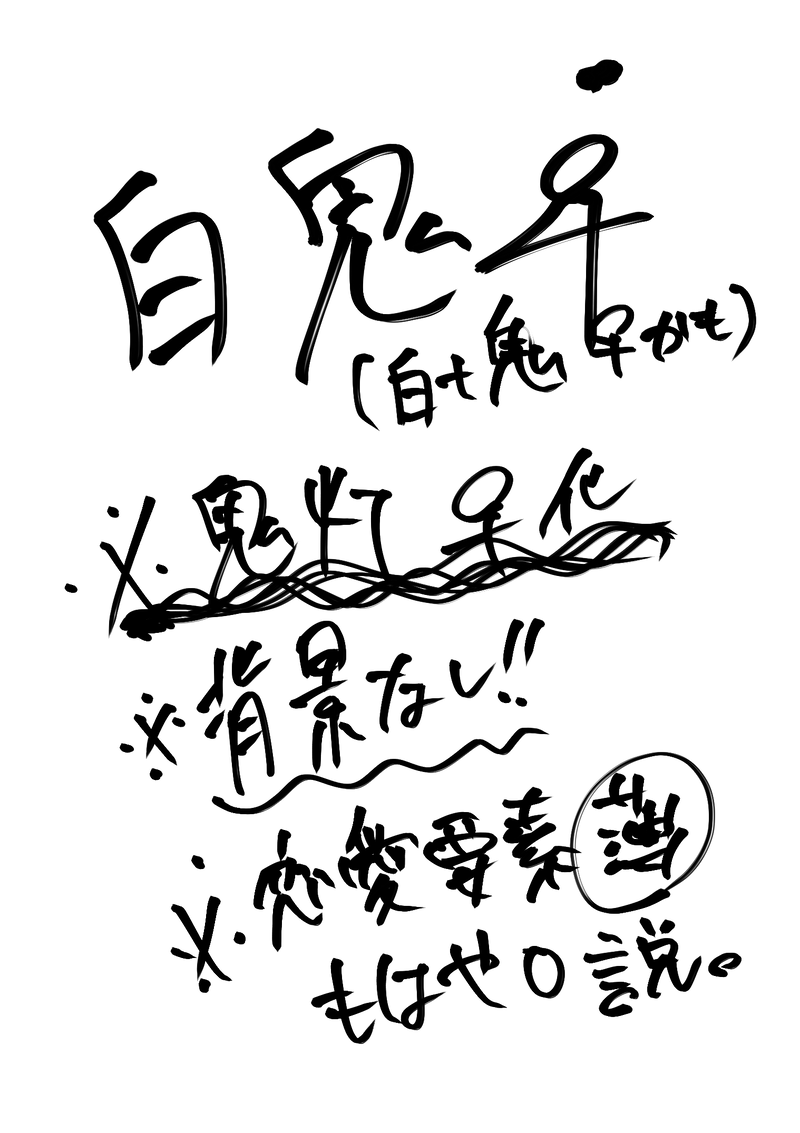 白鬼♀
(白+鬼♀かも)
※鬼灯♀化
※背景なし!!
※恋愛要素薄
もはや0説。